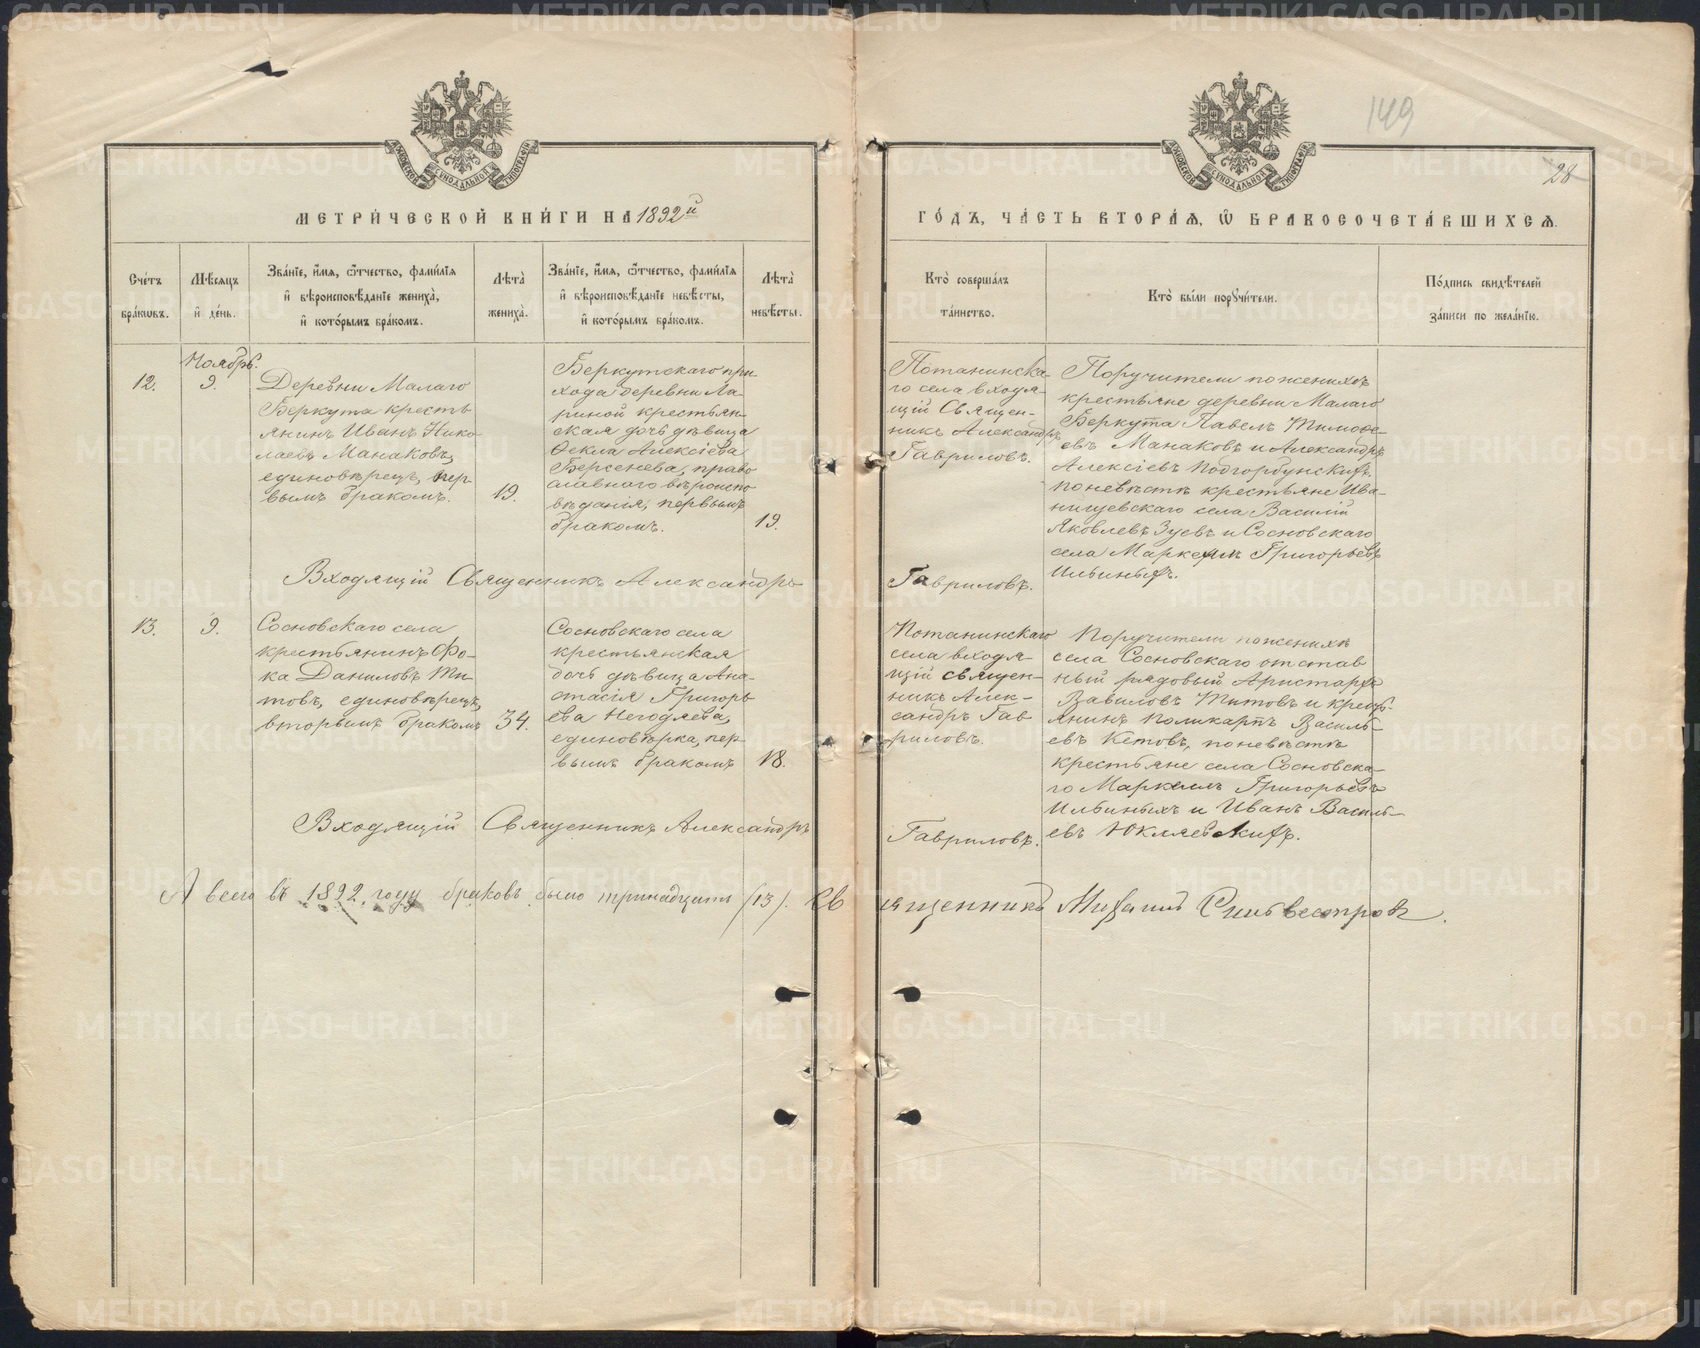 149
28
МОСКОВСКОЙ СѴНОДАЛЬНОЙ ТИПОГРАФІИ
МОСКОВСКОЙ СѴНОДАЛЬНОЙ ТИПОГРАФІИ
МЕТРИ́ЧЕСКОЙ КНИ́ГИ НА 1892й
ГО́ДЪ, ЧА́СТЬ ВТОРА́Ѧ, Ѽ БРАКОСОЧЕТА́ВШИХСѦ.
Сче́тъ бра́кѡвъ.
Мѣ́сѧцъ и҆ де́нь.
Зва́нїе, и҆́мѧ, ѻ҆́тчество, фами́лїѧ и҆ вѣроисповѣ́данїе жениха̀, и҆ кото́рымъ бра́комъ.
Лѣ́та̀ жениха̀.
Зва́нїе, и҆́мѧ, ѻ҆́тчество, фами́лїѧ и҆ вѣроисповѣ́данїе невѣ́сты, и҆ кото́рымъ бра́комъ.
Лѣ́та̀ невѣ́сты.
Кто̀ соверша́лъ та́инство.
Кто̀ бы́ли порꙋчи́тели.
По́дпись свидѣ́телей за́писи по жела́нїю.
12.
Ноябрь.
9.
Деревни Малаго
Беркута кресть
янинъ Иванъ Нико
лаевъ Манаковъ,
единовѣрецъ, пер
вымъ бракомъ.
19.
Беркутскаго при
хода деревни Ла
риной крестьян
ская дочь дѣвица
Ѳекла Алексіева
Берсенева, право
славнаго вѣроиспо
вѣданія, первымъ
бракомъ.
19.
Потанинска
го села входя
щій Священ-
никъ Александръ
Гавриловъ.
Поручители по женихѣ
крестьяне деревни Малаго
Беркута Павелъ Тимоѳе
евъ Манаковъ и Александръ
Алексіевъ Подгорбунскихъ,
по невѣстѣ крестьяне Ива-
нищевскаго села Василій
Яковлевъ Зуевъ и Сосновскаго
села Маркелъ Григорьевъ
Ильиныхъ.
Входящій Священникъ Александръ
Гавриловъ.
13.
9.
Сосновскаго села
крестьянинъ Ѳо-
ка Даниловъ Ти
товъ, единовѣрецъ,
вторымъ бракомъ
34.
Сосновскаго села
крестьянская
дочь дѣвица Ана-
стасія Григорь
ева Негодяева,
единовѣрка, пер
вымъ бракомъ
18.
Потанинскаго
села входя-
щій священ-
никъ Алек-
сандръ Гав
риловъ.
Поручители по женихѣ
села Сосновскаго отстав
ный рядовый Аристархъ
Вавиловъ Титовъ и кресть
янинъ Поликарпъ Василь-
евъ Кетовъ, по невѣстѣ
крестьяне села Сосновска-
го Маркелъ Григорьевъ
Ильиныхъ и Иванъ Василь-
евъ Юкляевскихъ.
Входящій Священникъ Александръ
Гавриловъ.
А всего въ 1892 году браковъ было тринадцать (13). Священникъ Михаилъ Сильвестровъ.
METRIKI.GASO-URAL.RU